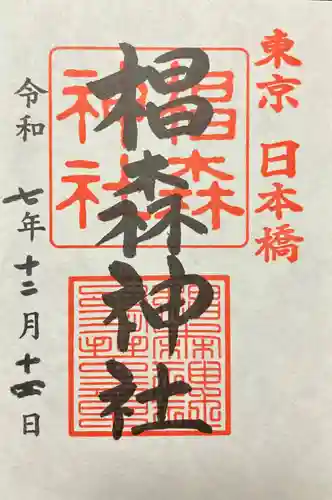 東京 日本橋
椙森神社
椙森
神社
令和 七年十二月十四日